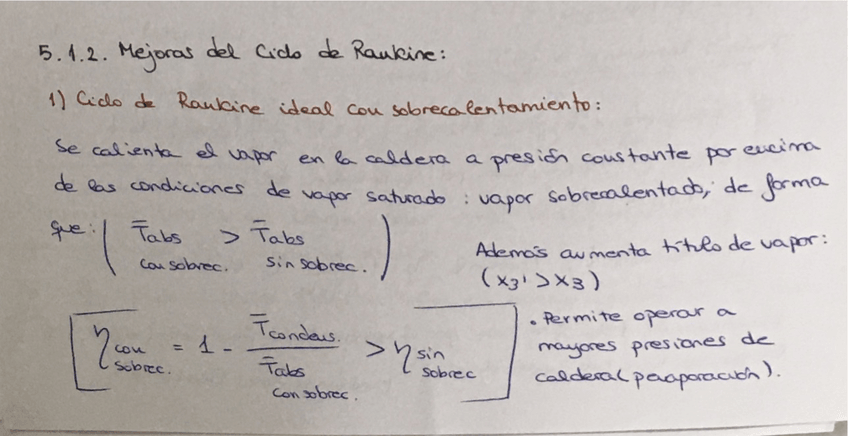 5.1.2. Mejoras del Ciclo de Rankine:
1) Ciclo de Rankine ideal con sobrecalentamiento:
Se calienta el vapor en la caldera a presión constante por encima
de las condiciones de vapor saturado: vapor sobrecalentado, de forma
que: ( T̄abs con sobrec. > T̄abs sin sobrec. )
Además aumenta título de vapor:
(x3' > x3)
[ η con sobrec. = 1 - T̄condens. / T̄abs con sobrec. > η sin sobrec ]
. Permite operar a
mayores presiones de
caldera